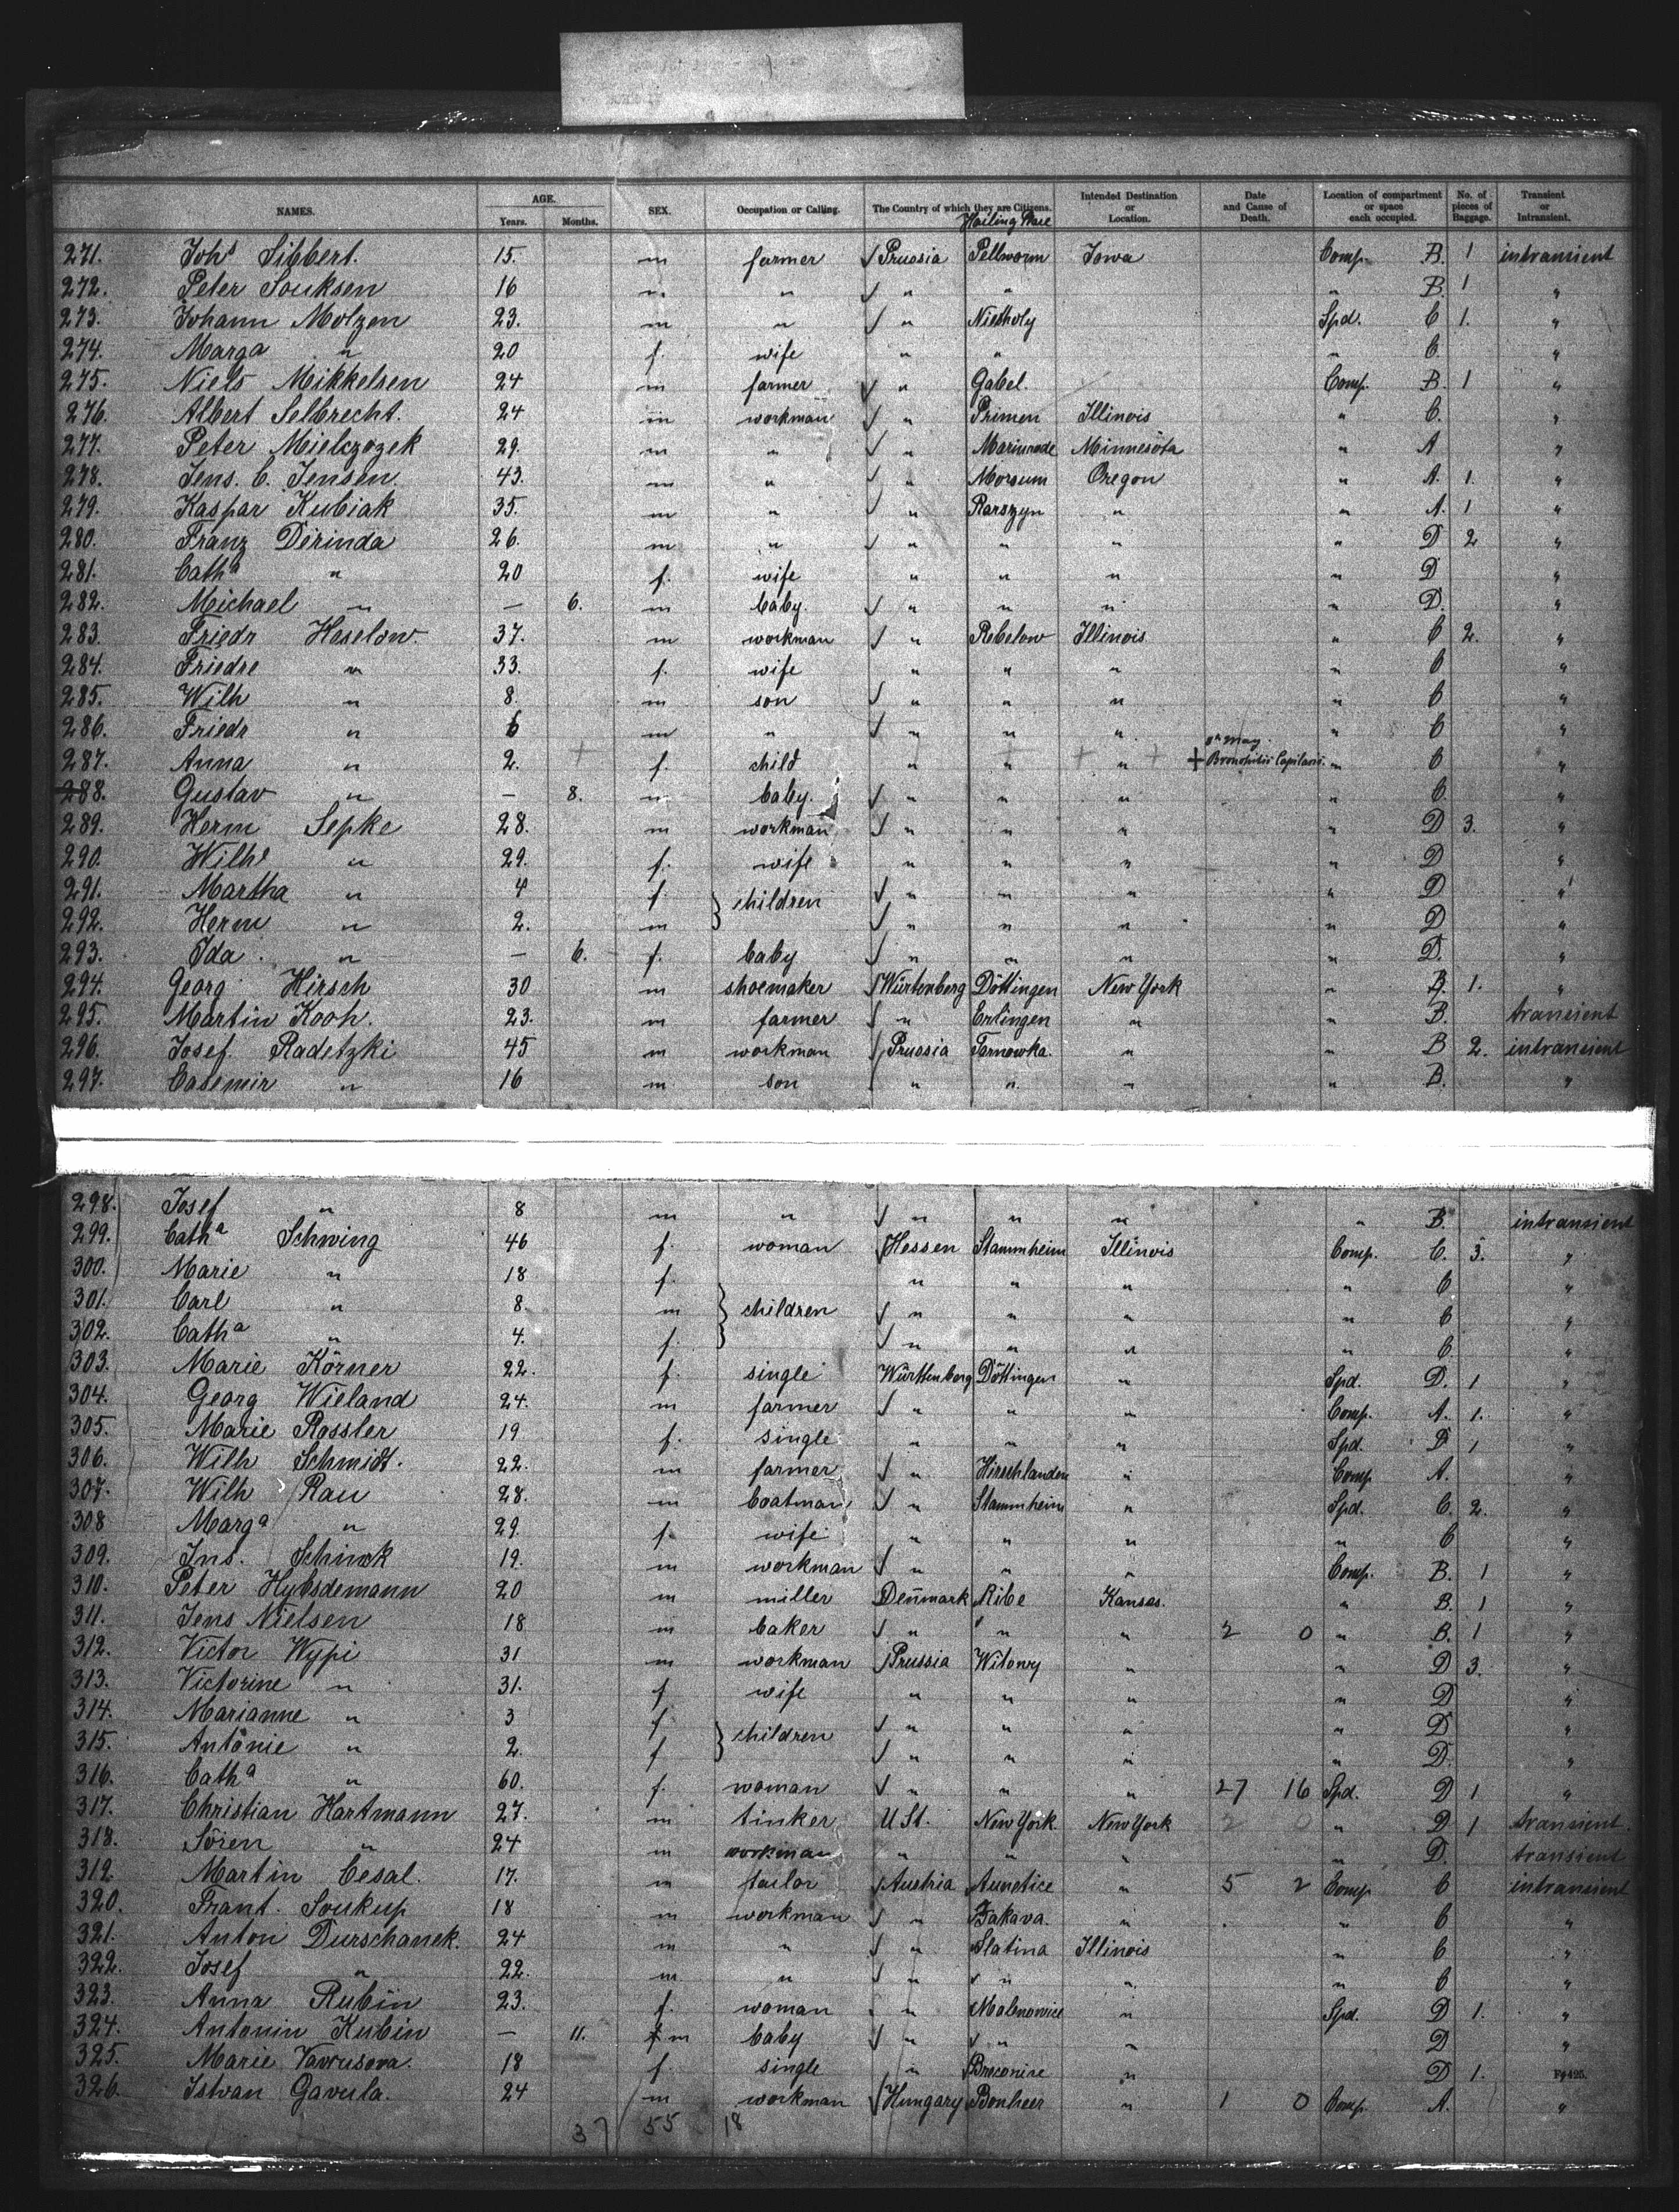 NAMES. AGE. Years. Months. SEX. Occupation or Calling. The Country of which they are Citizens. Hailing Place Intended Destination or Location. Date and Cause of Death. Location of compartment or space each occupied. No. of pieces of Baggage. Transient or Intransient.
271. Johs Sibbert. 15. m farmer Prussia Pellworm Iowa Comp. B. 1 intransient
272. Peter Souksen 16 " " " " " B. 1 "
273. Johann Molzen 23. m " " Spd. C 1. "
274. Marga " 20 f. wife " " " C. "
275. Niels Mikkelsen 24 m farmer " Gabel. Comp. B. 1 "
276. Albert Selbrecht. 24 m workman " Primen Illinois " C. "
277. Peter Mielczozek 29. m " " Minnesota " A "
278. Jens. C. Jensen. 43. m " " Morsum Oregon " A. 1. "
279. Kaspar Kubiak 35. m " " Rarszyn " " A. 1 "
280. Franz Dirinda 26. m " " " " " D 2 "
281. Catha " 20 f. wife " " " " D "
282. Michael " — 6. m baby. " " " " D. "
283. Friedr Heselow 37. m workman " Rebelow Illinois " C 2. "
284. Friedre " 33. f. wife " " " " C "
285. Wilh " 8. m son " " " " C "
286. Friedr " 6 m " " " " " C "
287. Anna " 2. f. child " " " + 8th May. Bronchitis Capilaris. " C "
288. Gustav " — 8. m baby. " " " " C. "
289. Herm Sepke 28. m workman " " " " D 3. "
290. Wilhe " 29. f. wife " " " " D "
291. Martha " 4 f. children " " " " D "
292. Herm " 2. m " " " " D "
293. Ida. " — 6. f. baby " " " " D. "
294. Georg Hirsch 30 m shoemaker Würtenberg Döttingen New York " B. 1. "
295. Martin Kooh. 23. m farmer " Erlingen " " B. transient
296. Josef. Radetzki 45 m workman Prussia Tarnowka. " " B 2. intransient
297. Casemir " 16 m son " " " " B. "
298. Josef " 8 m " " " " " B. intransient
299. Catha Schwing 46 f. woman Hessen Stammheim Illinois Comp. C. 3. "
300. Marie " 18 f. " " " " C "
301. Carl " 8. m children " " " " C "
302. Catha " 4. f. " " " " C. "
303. Marie Körner 22. f. single Württenberg Döttingen " Spd. D. 1 "
304. Georg Wieland 24. m farmer " " " Comp. A. 1. "
305. Marie Rossler 19 f. single " " " Spd. D 1 "
306. Wilh Schmidt. 22. m farmer " Hirschlanden " Comp A. "
307. Wilh Rau 28. m boatman " Stammheim " Spd. C. 2. "
308 Marga " 29. f. wife " " " " C "
309. Jns. Schinck 19. m workman " " " Comp. B. 1 "
310. Peter Hybsdemann 20 m miller Denmark Ribe Kansas. " B. 1 "
311. Jens Nielsen 18 m baker " " " 2 0 " B. 1 "
312. Victor Wypi 31 m workman Prussia Witowy " " D 3. "
313. Victorine " 31. f wife " " " " D "
314. Marianne " 3 f children " " " " D "
315. Antonie " 2. f " " " " D. "
316. Catha " 60. f. woman " " " 27 16 Spd. D 1 "
317. Christian Hartmann 27. m tinker U St. New York. New York 2 0 " D 1 transient.
318. Sören " 24 m workman " " " " D. transient
319. Martin Cesal. 17. m tailor Austria Aunetice " 5 2 Comp C intransient
320. Frant. Soukup 18 m workman " Zakava. " " C "
321. Anton Durschanek. 24 m " " Slatina Illinois " C "
322. Josef " 22. m " " " " " C "
323. Anna Rubin 23. f. woman " " Spd. D 1. "
324. Antonin Kubin — 11. m baby " " " D "
325. Marie Vavrusova. 18 f. single " " D 1. Fy 425.
326. Istvan Gavula. 24 m workman Hungary Bonheer " 1 0 Comp. A. "
37 55 18